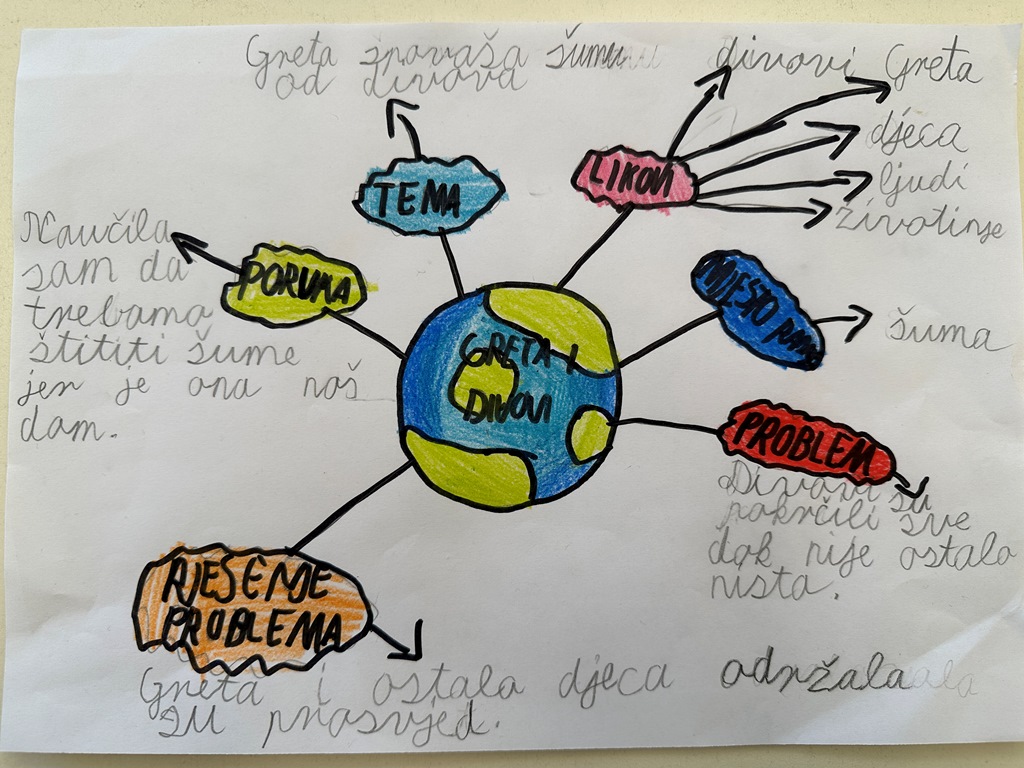 Greta spavaša šumu
od divova
TEMA
LIKOVI
divovi
Greta
djeca
ljudi
životinje
PORUKA
Naučila
sam da
trebamo
štititi šume
jer je ona noš
dom.
GRETA I
DIVOVI
MJESTO
šuma
PROBLEM
Divovi su
pokrčili sve
dok nije ostalo
ništa.
RJEŠENJE
PROBLEMA
Greta i ostala djeca održala
su prosvjed.